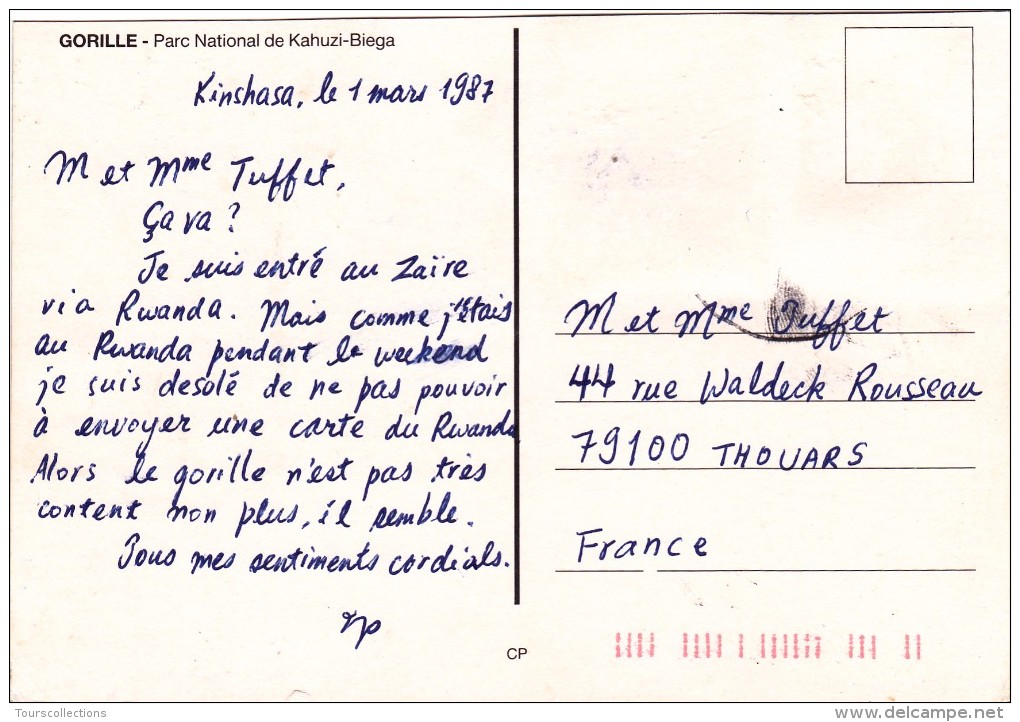 GORILLE - Parc National de Kahuzi-Biega
Kinshasa, le 1 mars 1987
M et Mme Tuffet,
Ça va ?
Je suis entré au Zaïre
via Rwanda. Mais comme j'étais
au Rwanda pendant le weekend
je suis desolé de ne pas pouvoir
à envoyer une carte du Rwanda
Alors le gorille n'est pas très
content non plus, il semble.
Tous mes sentiments cordials.
M et Mme Tuffet
44 rue Waldeck Rousseau
79100 THOUARS
France
CP
Tourscollections
delcampe.net